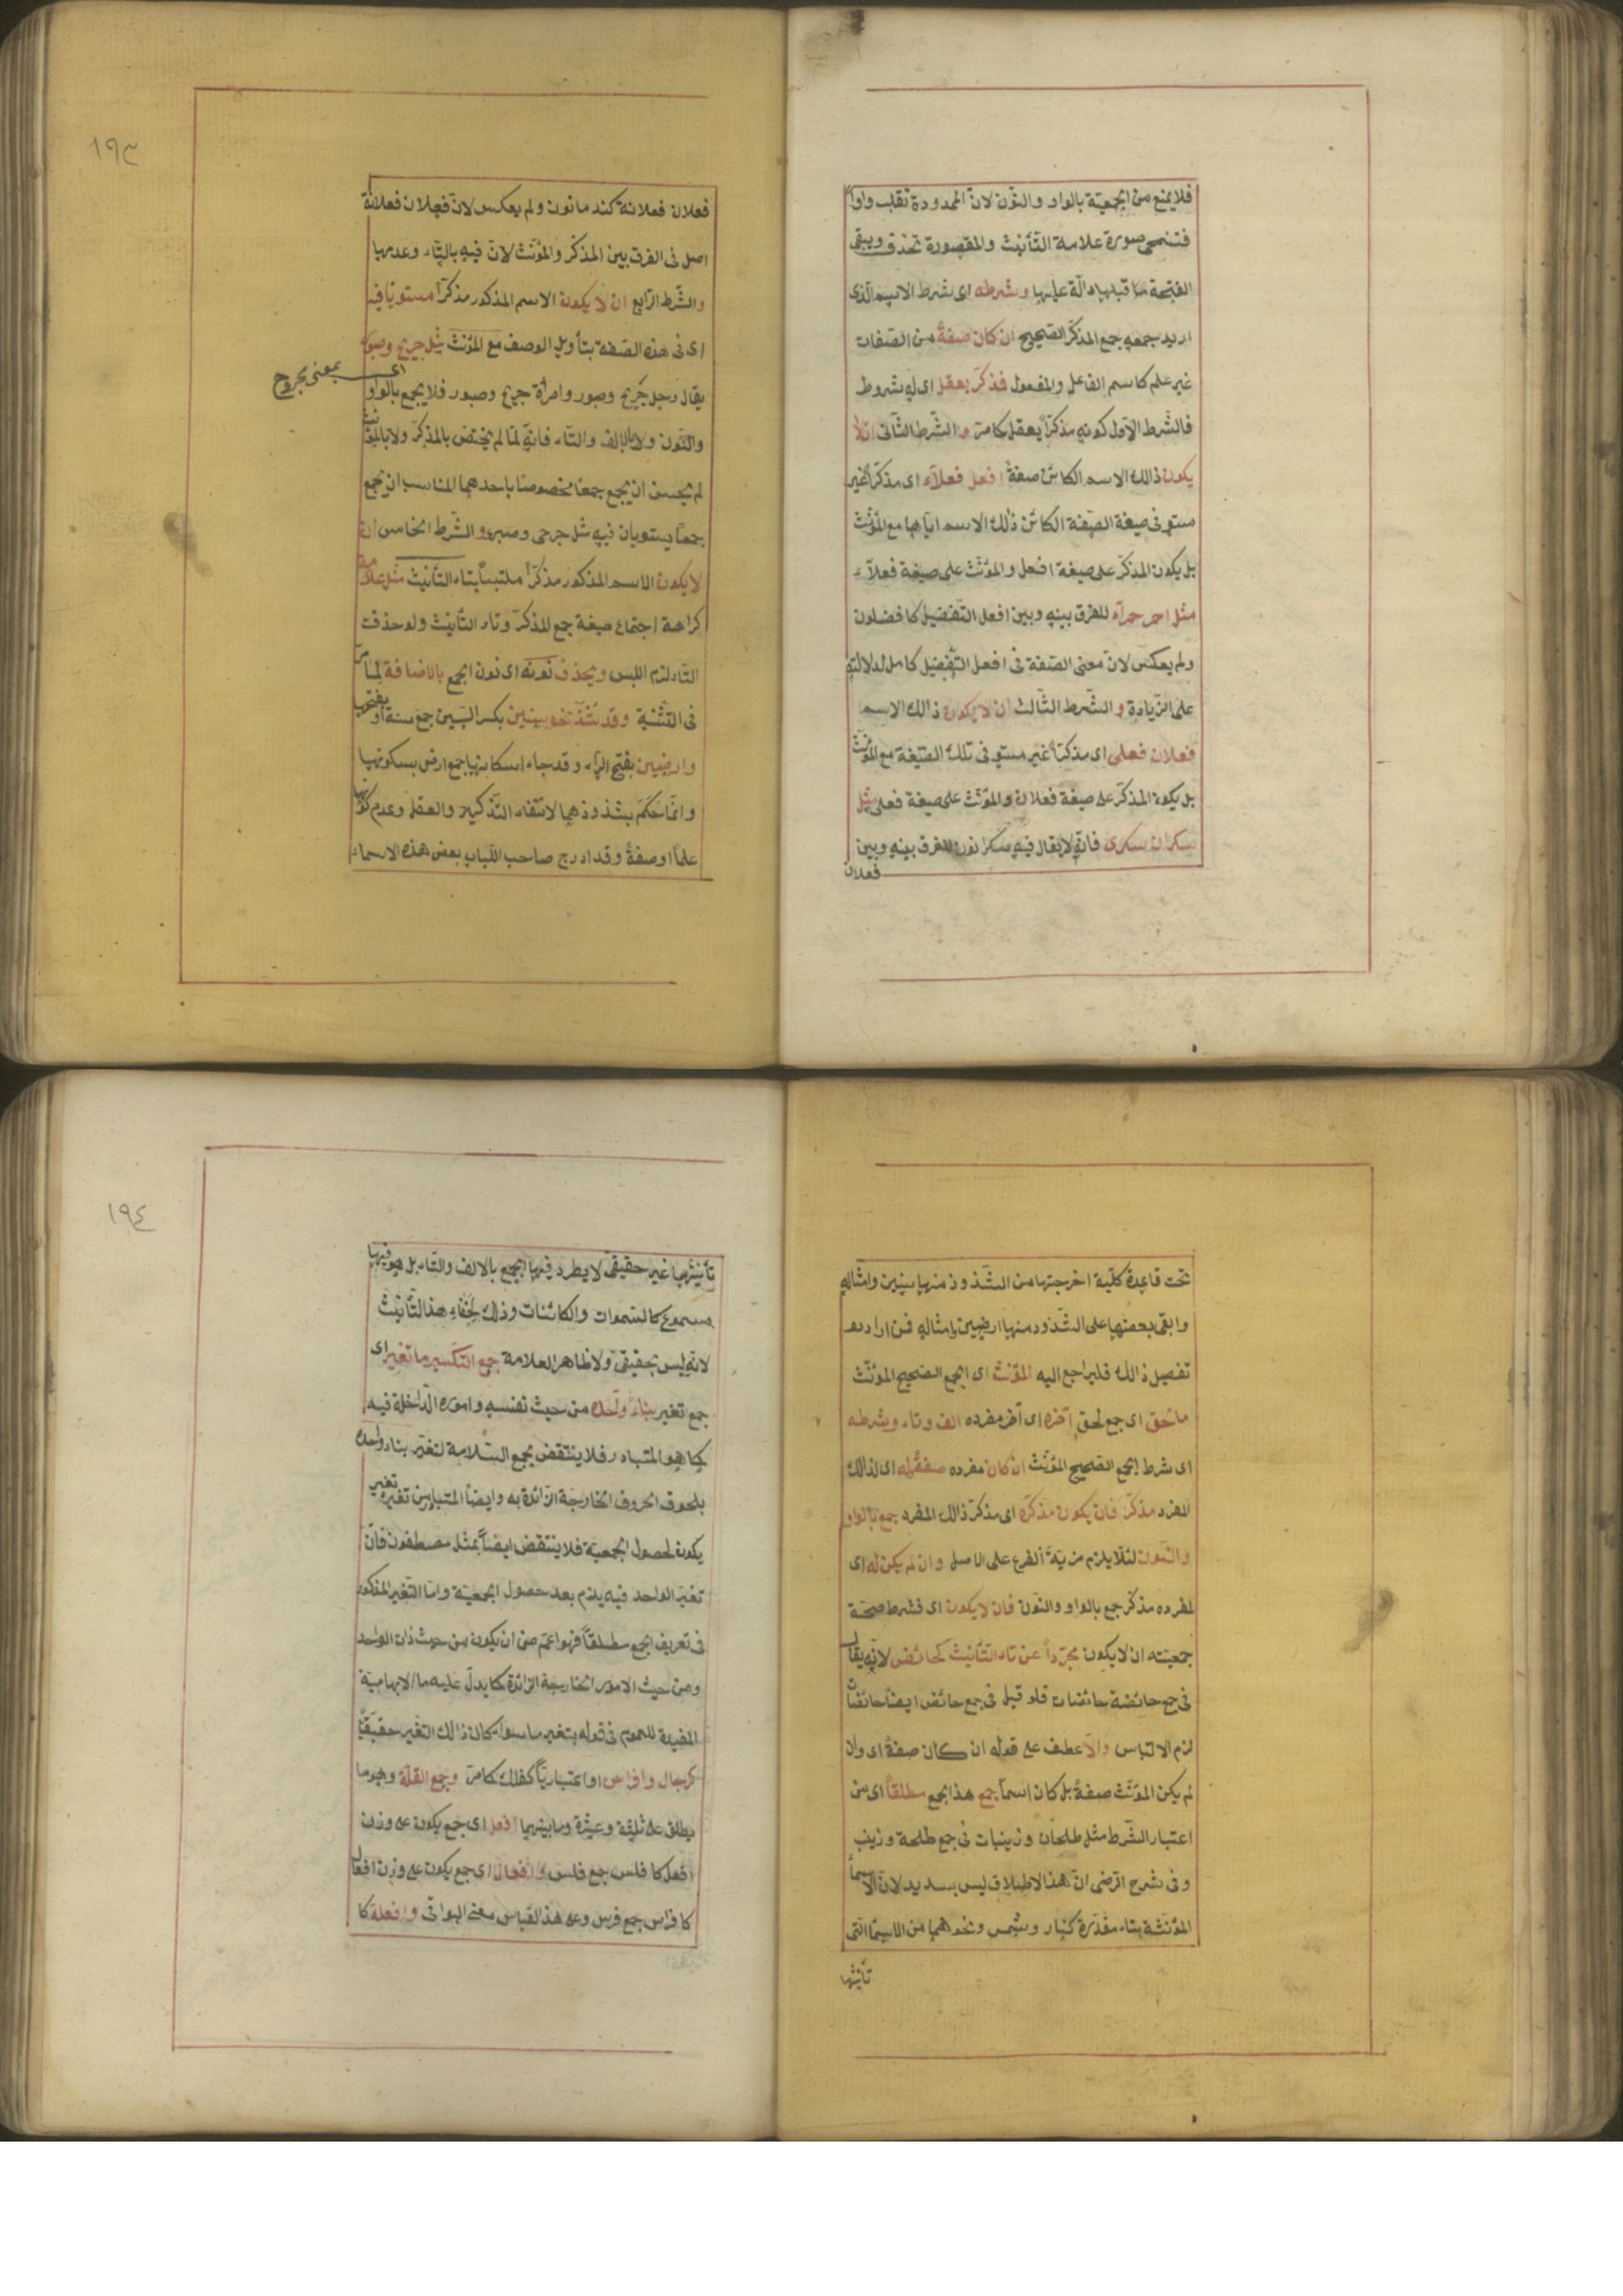 فلا يمنع من الجمعيّة بالواو والنّون لانّ الممدودة تقلب واواً
فتنمحى صورة علامة التّأنيث والمقصورة تحذف ويبقى
الفتحة ما قبلها دالّة عليها وشرطه اى شرط الاسم الّذى
اريد جمعه جمع المذكّر الصّحيح ان كان صفةً من الصّفات
غير علم كاسم الفاعل والمفعول فذكّر يعقل اى له شروط
فالشّرط الاوّل كونه مذكّراً يعقل كما مرّ والشّرط الثّانى ان لا
يكون ذالك الاسم الكائن صفةً افعل فعلاء اى مذكّراً غير
مستو فى صيغة الصّفة الكائن ذلك الاسم ايّاها مع المؤنّث
بل يكون المذكّر على صيغة افعل والمؤنّث على صيغة فعلآء
مثل احمر حمرآء للفرق بينه وبين افعل التّفضيل كافضلون
ولم يعكس لانّ معنى الصّفة فى افعل التّفضيل كامل لدلالته
على الزّيادة والشّرط الثّالث ان لا يكون ذالك الاسم
فعلان فعلى اى مذكّراً غير مستو فى تلك الصّيغة مع المؤنّث
بل يكون المذكّر على صيغة فعلان والمؤنّث على صيغة فعلى مثل
سكران سكرى فانّه لا يقال فيه سكرانون للفرق بينه وبين
فعلان
١٩٣
فعلان فعلانة كندمانون ولم يعكس لانّ فعلان فعلانة
اصل فى الفرق بين المذكّر والمؤنّث لانّ فيه بالتّاء وعدمها
والشّرط الرّابع ان لا يكون الاسم المذكور مذكّراً مستويا فيه
اى فى هذه الصّفة بتأويل الوصف مع المؤنّث مثل جريح وصبور
اى بمعنى مجروح
يقال رجل جريح وصبور وامرأة جريح وصبور فلا يجمع بالواو
والنّون ولا بالالف والتّاء فانّه لمّا لم يختصّ بالمذكّر ولا بالمؤنّث
لم يحسن ان يجمع جمعاً مخصوصاً باحدهما المناسب ان يجمع
جمعاً يستويان فيه مثل جرحى وصبر والشّرط الخامس ان
لا يكون الاسم المذكور مذكّراً ملتبساً بتاء التّأنيث مثل علّامة
كراهة اجتماع صيغة جمع المذكّر وتاء التّأنيث ولو حذفت
التّاء لزم اللبس ويحذف نونه اى نون الجمع بالاضافة لما مرّ
فى التّثنية وقد شذّ نحو سنين بكسر السّين جمع سنة بفتحها
وارضين بفتح الرّاء وقد جاء اسكانها جمع ارض بسكونها
وانّما حكم بشذوذهما لانتفاء التّذكير والعقل وعدم كونها
علماً او صفةً وقد ادرج صاحب اللّباب بعض هذه الاسماء
تحت قاعدة كلّيّة اخرجتها من الشّذوذ منها سنين وامثاله
وابقى بعضها على الشّذوذ منها ارضين وامثاله فمن اراد
تفصيل ذالك فليراجع اليه المؤنّث اى الجمع الصّحيح المؤنّث
ما لحق اى جمع لحق آخره اى آخر مفرده الف وتاء وشرطه
اى شرط الجمع الصّحيح المؤنّث ان كان مفرده صفةً وله اى لذالك
المفرد مذكّر فان يكون مذكّره اى مذكّر ذالك المفرد جمع بالواو
والنّون لئلّا يلزم مزيّة الفرع على الاصل وان لم يكن له اى
لمفرده مذكّر جمع بالواو والنّون فان لا يكون اى فشرط صحّة
جمعيّته ان لا يكون مجرّداً عن تاء التّأنيث كحائض لانّه يقال
فى جمع حائضة حائضات فلو قيل فى جمع حائض ايضاً حائضات
لزم الالتباس والّا عطف على قوله ان كان صفةً اى وان
لم يكن المؤنّث صفةً بل كان اسماً جمع هذا الجمع مطلقاً اى من
اعتبار الشّرط مثل طلحات وزينبات فى جمع طلحة وزينب
وفى شرح الرّضى انّ هذا الاطلاق ليس بسديد لانّ الاسماء
المؤنّثة بتاء مقدّرة كنار وشمس ونحوهما من الاسماء الّتى
تأنيثها
١٩٤
تأنيثها غير حقيقىّ لا يطرد فيها الجمع بالالف والتّاء بل هو فيها
مسموع كالسّموات والكائنات وذلك لخفاء هذا التّأنيث
لانّه ليس بحقيقىّ ولا ظاهر العلامة جمع التّكسير ما تغيّر اى
جمع تغيّر بناء واحده من حيث نفسه واموره الدّاخلة فيه
كما هو المتبادر فلا ينتقض بجمع السّلامة لتغيّر بناء واحده
بلحوق الحروف الخارجة الزّائدة به وايضاً المتبادر من تغيّره تغيّر
يكون لحصول الجمعيّة فلا ينتقض ايضاً بمثل مصطفون فانّ
تغيّر الواحد فيه يلزم بعد حصول الجمعيّة وامّا التّغيّر المذكور
فى تعريف الجمع مطلقاً فهو اعمّ من ان يكون من حيث ذات الواحد
ومن حيث الامور الخارجة الزّائدة كما يدلّ عليه ما الابهاميّة
المفيدة للعموم فى قوله بتغيّر ما سواء كان ذالك التّغيّر حقيقيّاً
كرجال وافراس او اعتباريّاً كفلك كما مرّ وجمع القلّة وهو ما
يطلق على ثلثة وعشرة وما بينهما افعل اى جمع يكون على وزن
افعل كافلس جمع فلس وافعال اى جمع يكون على وزن افعال
كافراس جمع فرس وعلى هذا القياس معنى البواقى وافعلة كا